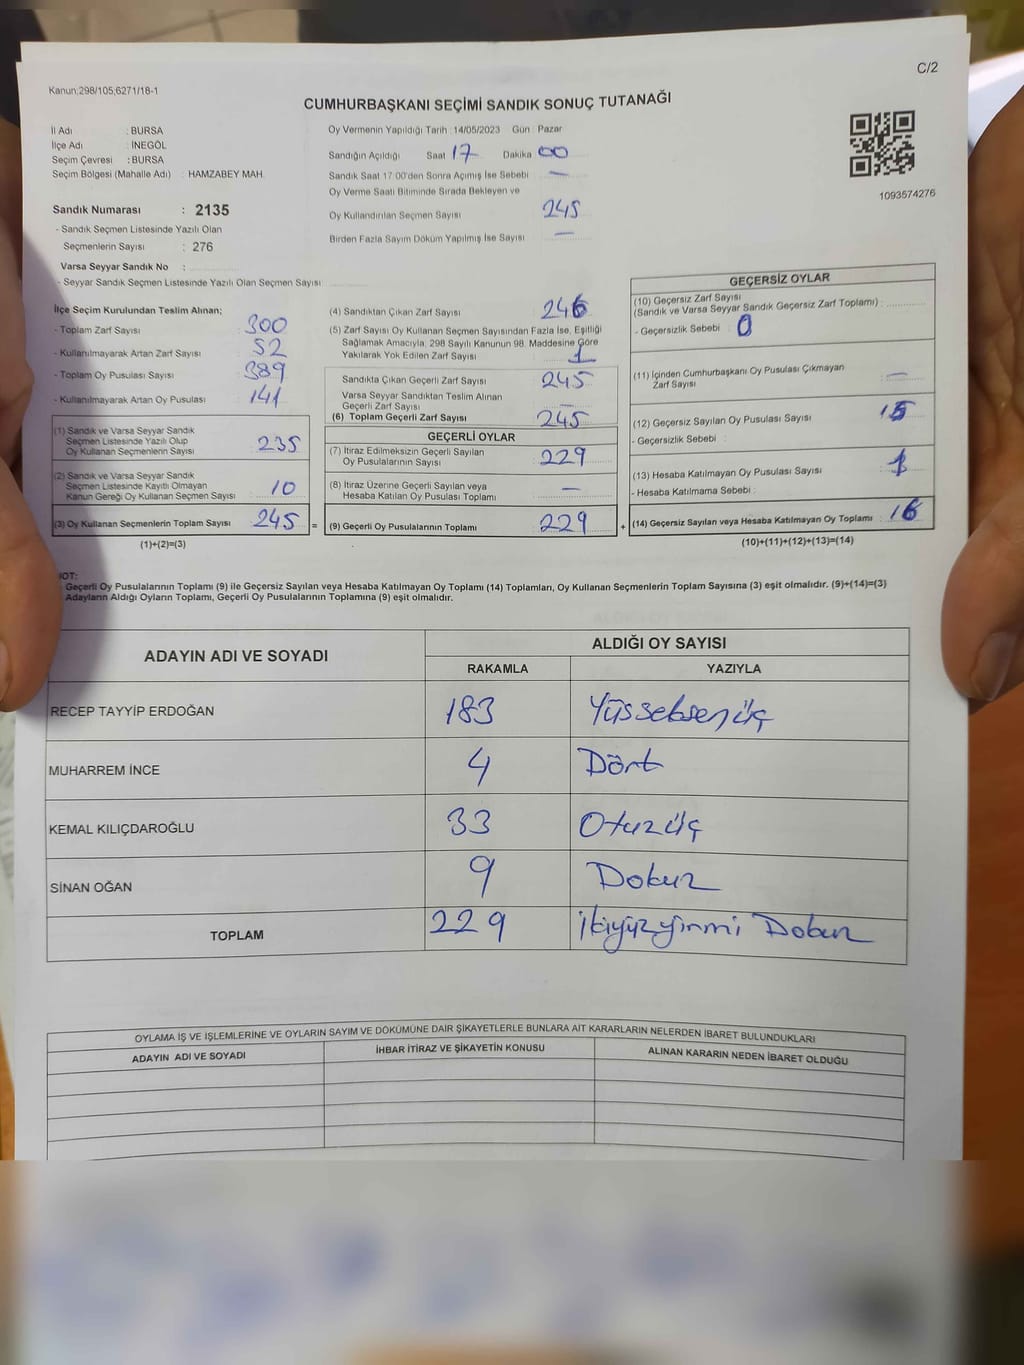 C/2
Kanun:298/105;6271/18-1
CUMHURBAŞKANI SEÇİMİ SANDIK SONUÇ TUTANAĞI
İl Adı : BURSA
İlçe Adı : İNEGÖL
Seçim Çevresi : BURSA
Seçim Bölgesi (Mahalle Adı) : HAMZABEY MAH.
Sandık Numarası : 2135
- Sandık Seçmen Listesinde Yazılı Olan
Seçmenlerin Sayısı : 276
Varsa Seyyar Sandık No :
- Seyyar Sandık Seçmen Listesinde Yazılı Olan Seçmen Sayısı
Oy Vermenin Yapıldığı Tarih : 14/05/2023 Gün : Pazar
Sandığın Açıldığı Saat 17 Dakika 00
Sandık Saat 17:00'den Sonra Açımış İse Sebebi —
Oy Verme Saati Bitiminde Sırada Bekleyen ve
Oy Kullandırılan Seçmen Sayısı 245
Birden Fazla Sayım Döküm Yapılmış İse Sayısı —
1093574276
İlçe Seçim Kurulundan Teslim Alınan;
- Toplam Zarf Sayısı 300
- Kullanılmayarak Artan Zarf Sayısı 52
- Toplam Oy Pusulası Sayısı 389
- Kullanılmayarak Artan Oy Pusulası 141
(1) Sandık ve Varsa Seyyar Sandık
Seçmen Listesinde Yazılı Olup
Oy Kullanan Seçmenlerin Sayısı 235
(2) Sandık ve Varsa Seyyar Sandık
Seçmen Listesinde Kayıtlı Olmayan
Kanun Gereği Oy Kullanan Seçmen Sayısı 10
(3) Oy Kullanan Seçmenlerin Toplam Sayısı 245 =
(1)+(2)=(3)
(4) Sandıktan Çıkan Zarf Sayısı 246
(5) Zarf Sayısı Oy Kullanan Seçmen Sayısından Fazla İse, Eşitliği
Sağlamak Amacıyla; 298 Sayılı Kanunun 98. Maddesine Göre
Yakılarak Yok Edilen Zarf Sayısı 1
Sandıkta Çıkan Geçerli Zarf Sayısı 245
Varsa Seyyar Sandıktan Teslim Alınan
Geçerli Zarf Sayısı —
(6) Toplam Geçerli Zarf Sayısı 245
GEÇERLİ OYLAR
(7) İtiraz Edilmeksizin Geçerli Sayılan
Oy Pusulalarının Sayısı 229
(8) İtiraz Üzerine Geçerli Sayılan veya
Hesaba Katılan Oy Pusulası Toplamı —
(9) Geçerli Oy Pusulalarının Toplamı 229 +
GEÇERSİZ OYLAR
(10) Geçersiz Zarf Sayısı
(Sandık ve Varsa Seyyar Sandık Geçersiz Zarf Toplamı) :
- Geçersizlik Sebebi : 0
(11) İçinden Cumhurbaşkanı Oy Pusulası Çıkmayan
Zarf Sayısı —
(12) Geçersiz Sayılan Oy Pusulası Sayısı 15
- Geçersizlik Sebebi :
(13) Hesaba Katılmayan Oy Pusulası Sayısı 1
- Hesaba Katılmama Sebebi :
(14) Geçersiz Sayılan veya Hesaba Katılmayan Oy Toplamı : 16
(10)+(11)+(12)+(13)=(14)
NOT:
Geçerli Oy Pusulalarının Toplamı (9) ile Geçersiz Sayılan veya Hesaba Katılmayan Oy Toplamı (14) Toplamları, Oy Kullanan Seçmenlerin Toplam Sayısına (3) eşit olmalıdır. (9)+(14)=(3)
Adayların Aldığı Oyların Toplamı, Geçerli Oy Pusulalarının Toplamına (9) eşit olmalıdır.
ADAYIN ADI VE SOYADI ALDIĞI OY SAYISI
RAKAMLA YAZIYLA
RECEP TAYYİP ERDOĞAN 183 Yüssebsenüç
MUHARREM İNCE 4 Dört
KEMAL KILIÇDAROĞLU 33 Otuzüç
SİNAN OĞAN 9 Dokuz
TOPLAM 229 ikiyüzyirmi Dokuz
OYLAMA İŞ VE İŞLEMLERİNE VE OYLARIN SAYIM VE DÖKÜMÜNE DAİR ŞİKAYETLERLE BUNLARA AİT KARARLARIN NELERDEN İBARET BULUNDUKLARI
ADAYIN ADI VE SOYADI İHBAR İTİRAZ VE ŞİKAYETİN KONUSU ALINAN KARARIN NEDEN İBARET OLDUĞU